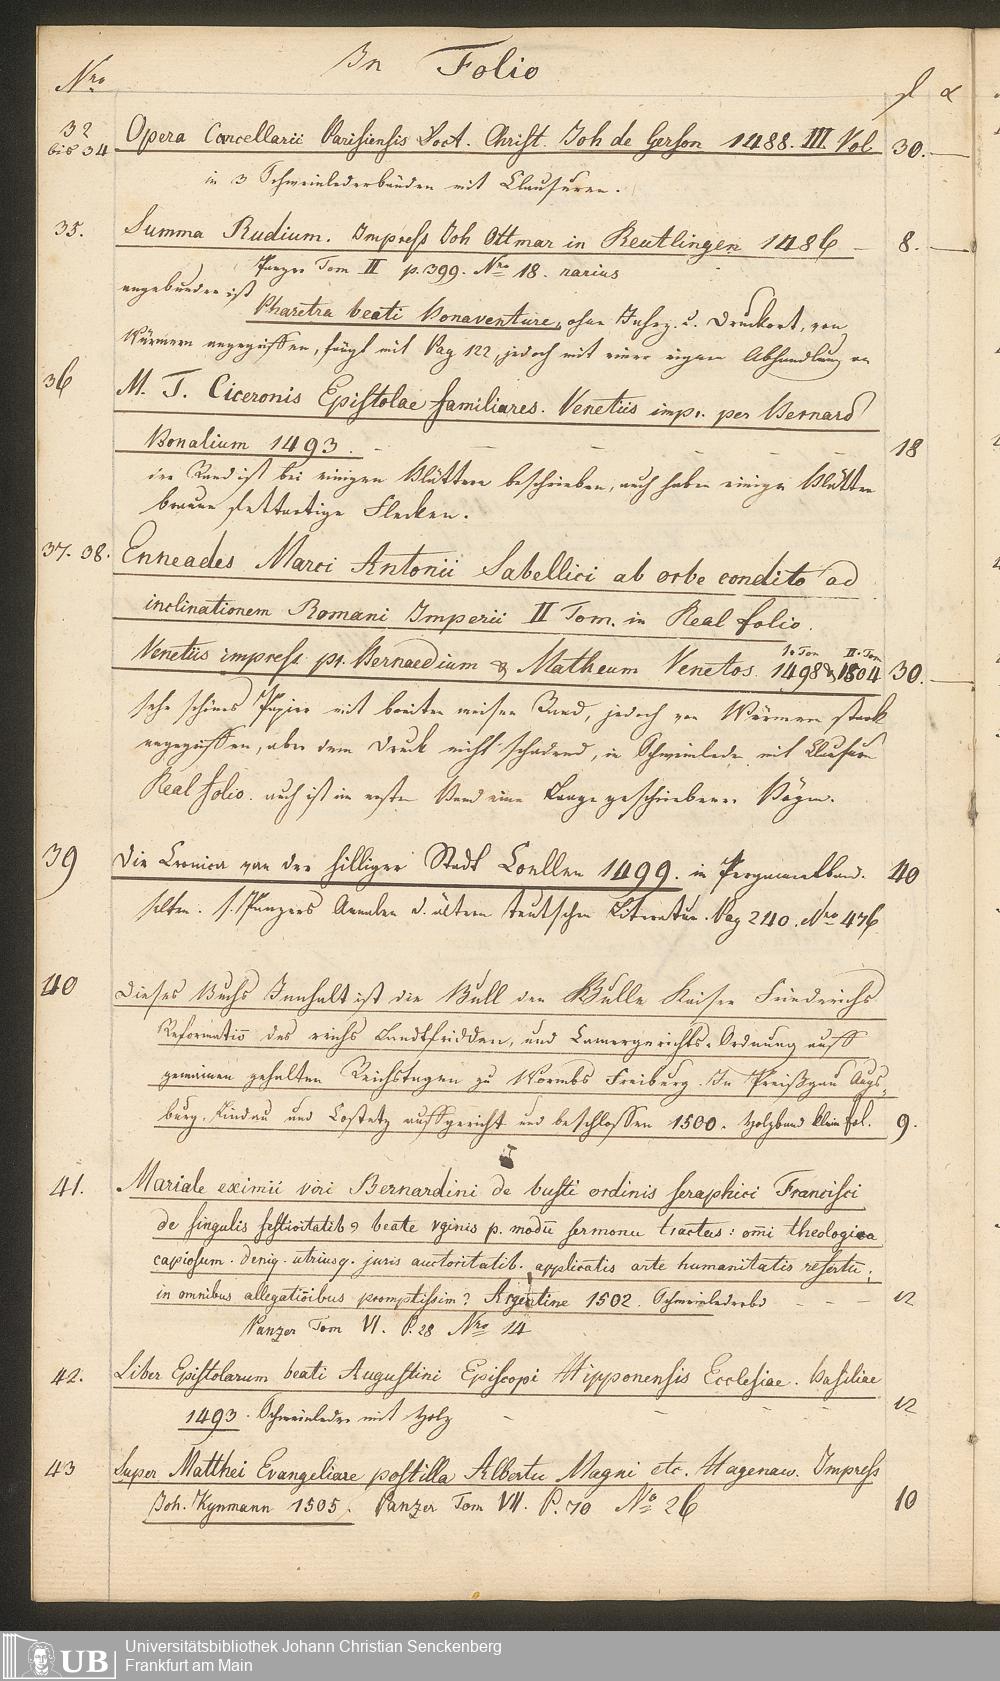 In Folio
Nro fl x
32 bis 34 Opera Cancellarii Parisiensis Doct. Christ. Joh de Gerson 1488. III Vol 30.—
in 3 Schweinlederbänden mit Clausuren.
35. Summa Rudium. Impress Joh Ottmar in Reutlingen 1486 — 8.—
Panzer Tom II p. 399. Nro 18. rarius
angebunden ist
Pharetra beati Bonaventure, ohne Jahrz. u. Druckort, von
Würmern angegriffen, fängt mit Pag 122, jedoch mit einer eignen Abhandlung an
36 M. T. Ciceronis Epistolae familiares. Venetiis impr. per Bernard
Bonalium 1493. 18
der Rand ist bei einigen Blättern beschrieben, auch haben einige Blätter
braune fettartige Flecken.
37. 38. Enneades Marci Antonii Sabellici ab orbe condito ad
inclinationem Romani Imperii II Tom. in Real folio.
Venetiis impress pr. Bernaedium & Matheum Venetos. 1o Tom 1498 & II. Tom 1504 30.—
sehr schönes Papier mit breiten weisen Rand, jedoch von Würmern stark
angegriffen, aber dem Druck nicht schadend, in Schweinleder mit Clausuren
Real folio. auch ist im ersten Band eine Lange geschriebene Bögen.
39 Die Cronica van der hilliger Stadt Coellen 1499. in Pergamentband. 40
selten. s. Panzers Annalen d. ältern teutschen Literatur. Pag 240. Nro 476
40 Dieses Buchs Innhalt ist die Bull der Bulle Kaiser Friederichs
Reformatio des reichs Landtfridden, und Camergerichts-Ordnung auff
gemainen gehalten Reichstagen zu Wormbs Freiburg In Preißgau Augs-
burg. Lindau und Costetz auffgericht und beschlossen 1500. Holzband klein fol. 9.
41. Mariale eximii viri Bernardini de busti ordinis seraphici Francisci
de singulis festivitatib9 beate vginis p. modū sermonu tractās: omi theologica
capiosum. deniq. utriusq. juris auctoritatib. applicatis arte humanitatis refertū;
in omnibus allegatioibus promptissim? Argentine 1502. Schweinlederbd — — 12
Panzer Tom VI. P. 28 Nro 14
42. Liber Epistolarum beati Augustini Episcopi Hipponensis Ecclesiae. Basiliae
1493. Schweinleder mit Holz — 12
43 Super Matthei Evangeliare postilla Albertu Magni etc. Hagenaw. Impress
Joh. Rynmann 1505. Panzer Tom VII. P. 70 No 26 10
UB Universitätsbibliothek Johann Christian Senckenberg
Frankfurt am Main